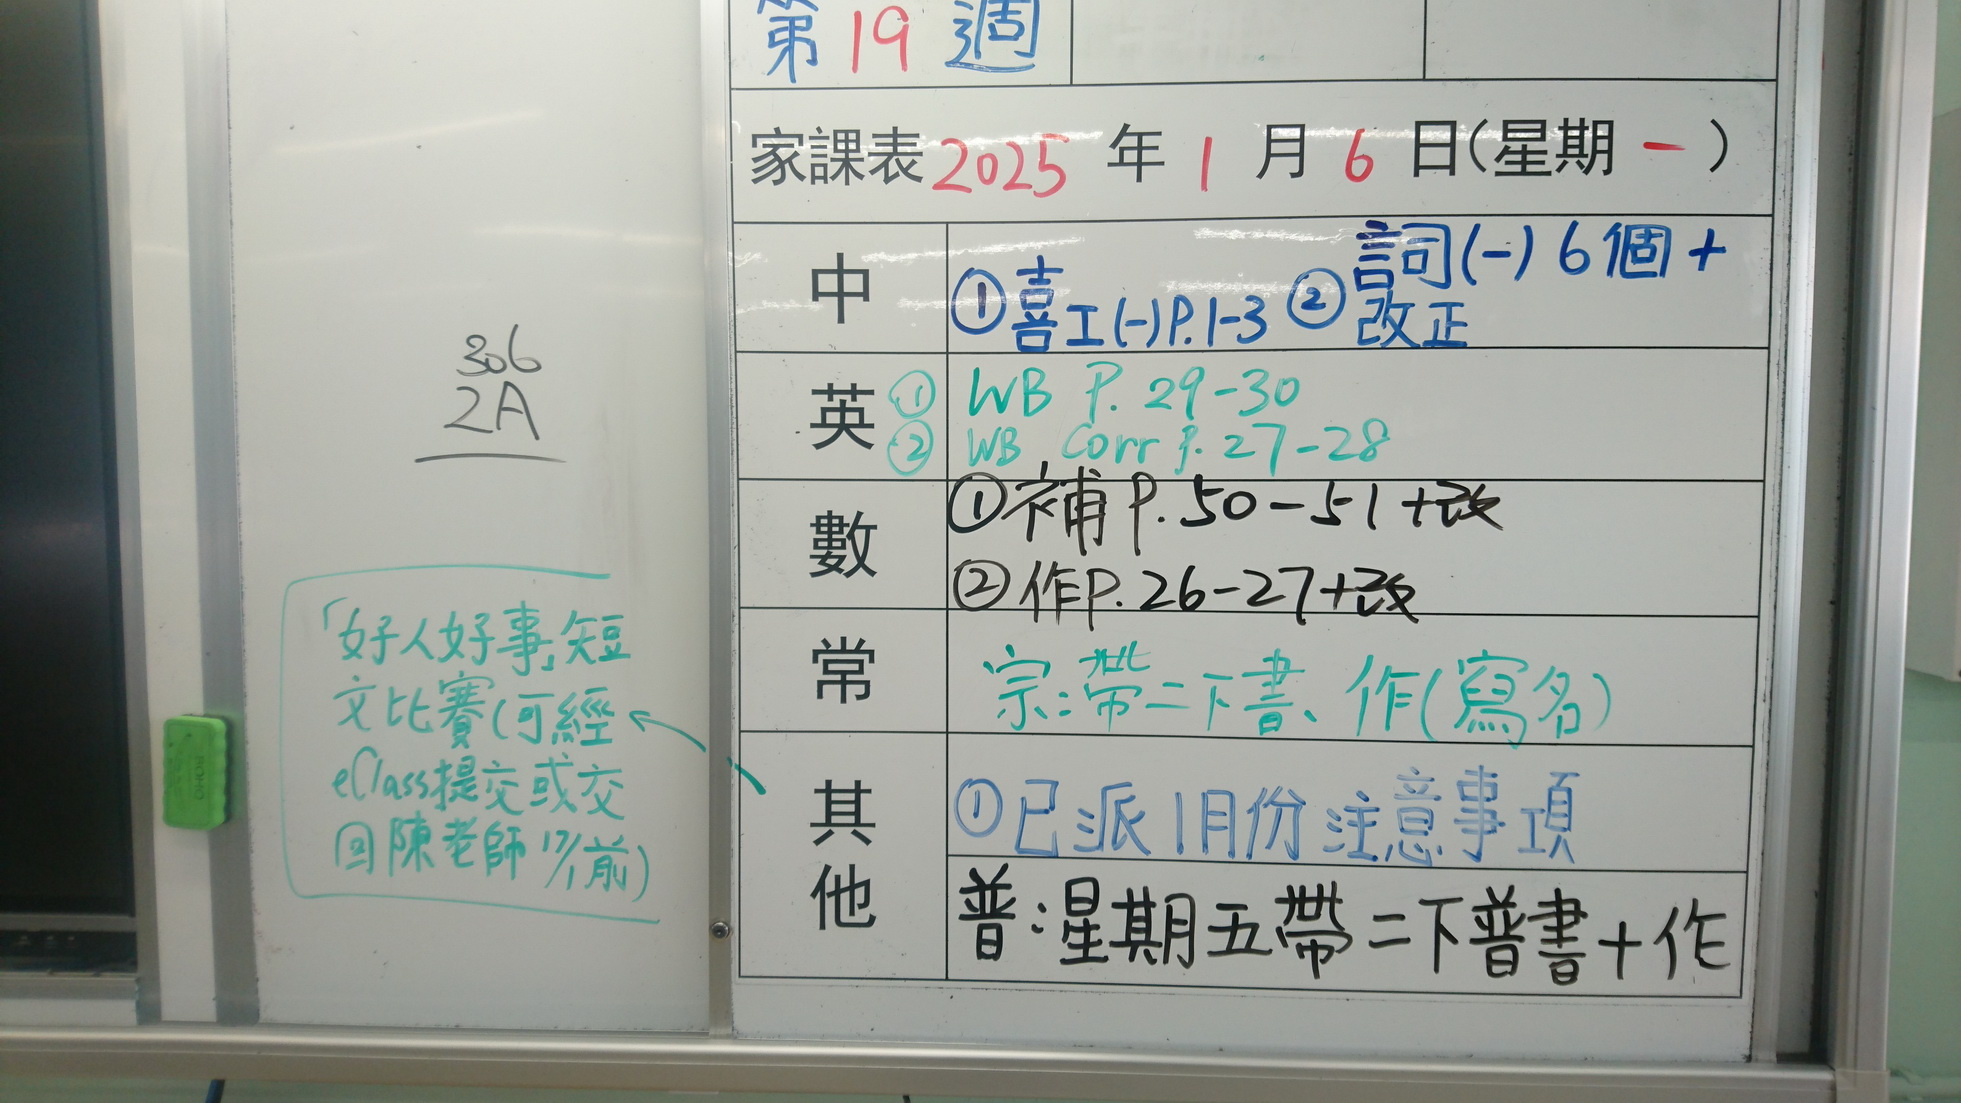 第19週
家課表2025年1月6日(星期一)
中
①喜工(一)P.1-3 ②詞(一)6個+
改正
英
① WB P. 29-30
② WB Corr P. 27-28
數
①補P.50-51+改
②作P.26-27+改
常
宗:帶二下書、作(寫名)
其他
①已派1月份注意事項
普:星期五帶二下普書+作
306
2A
「好人好事」短
文比賽(可經
eClass提交或交
回陳老師17/1前)